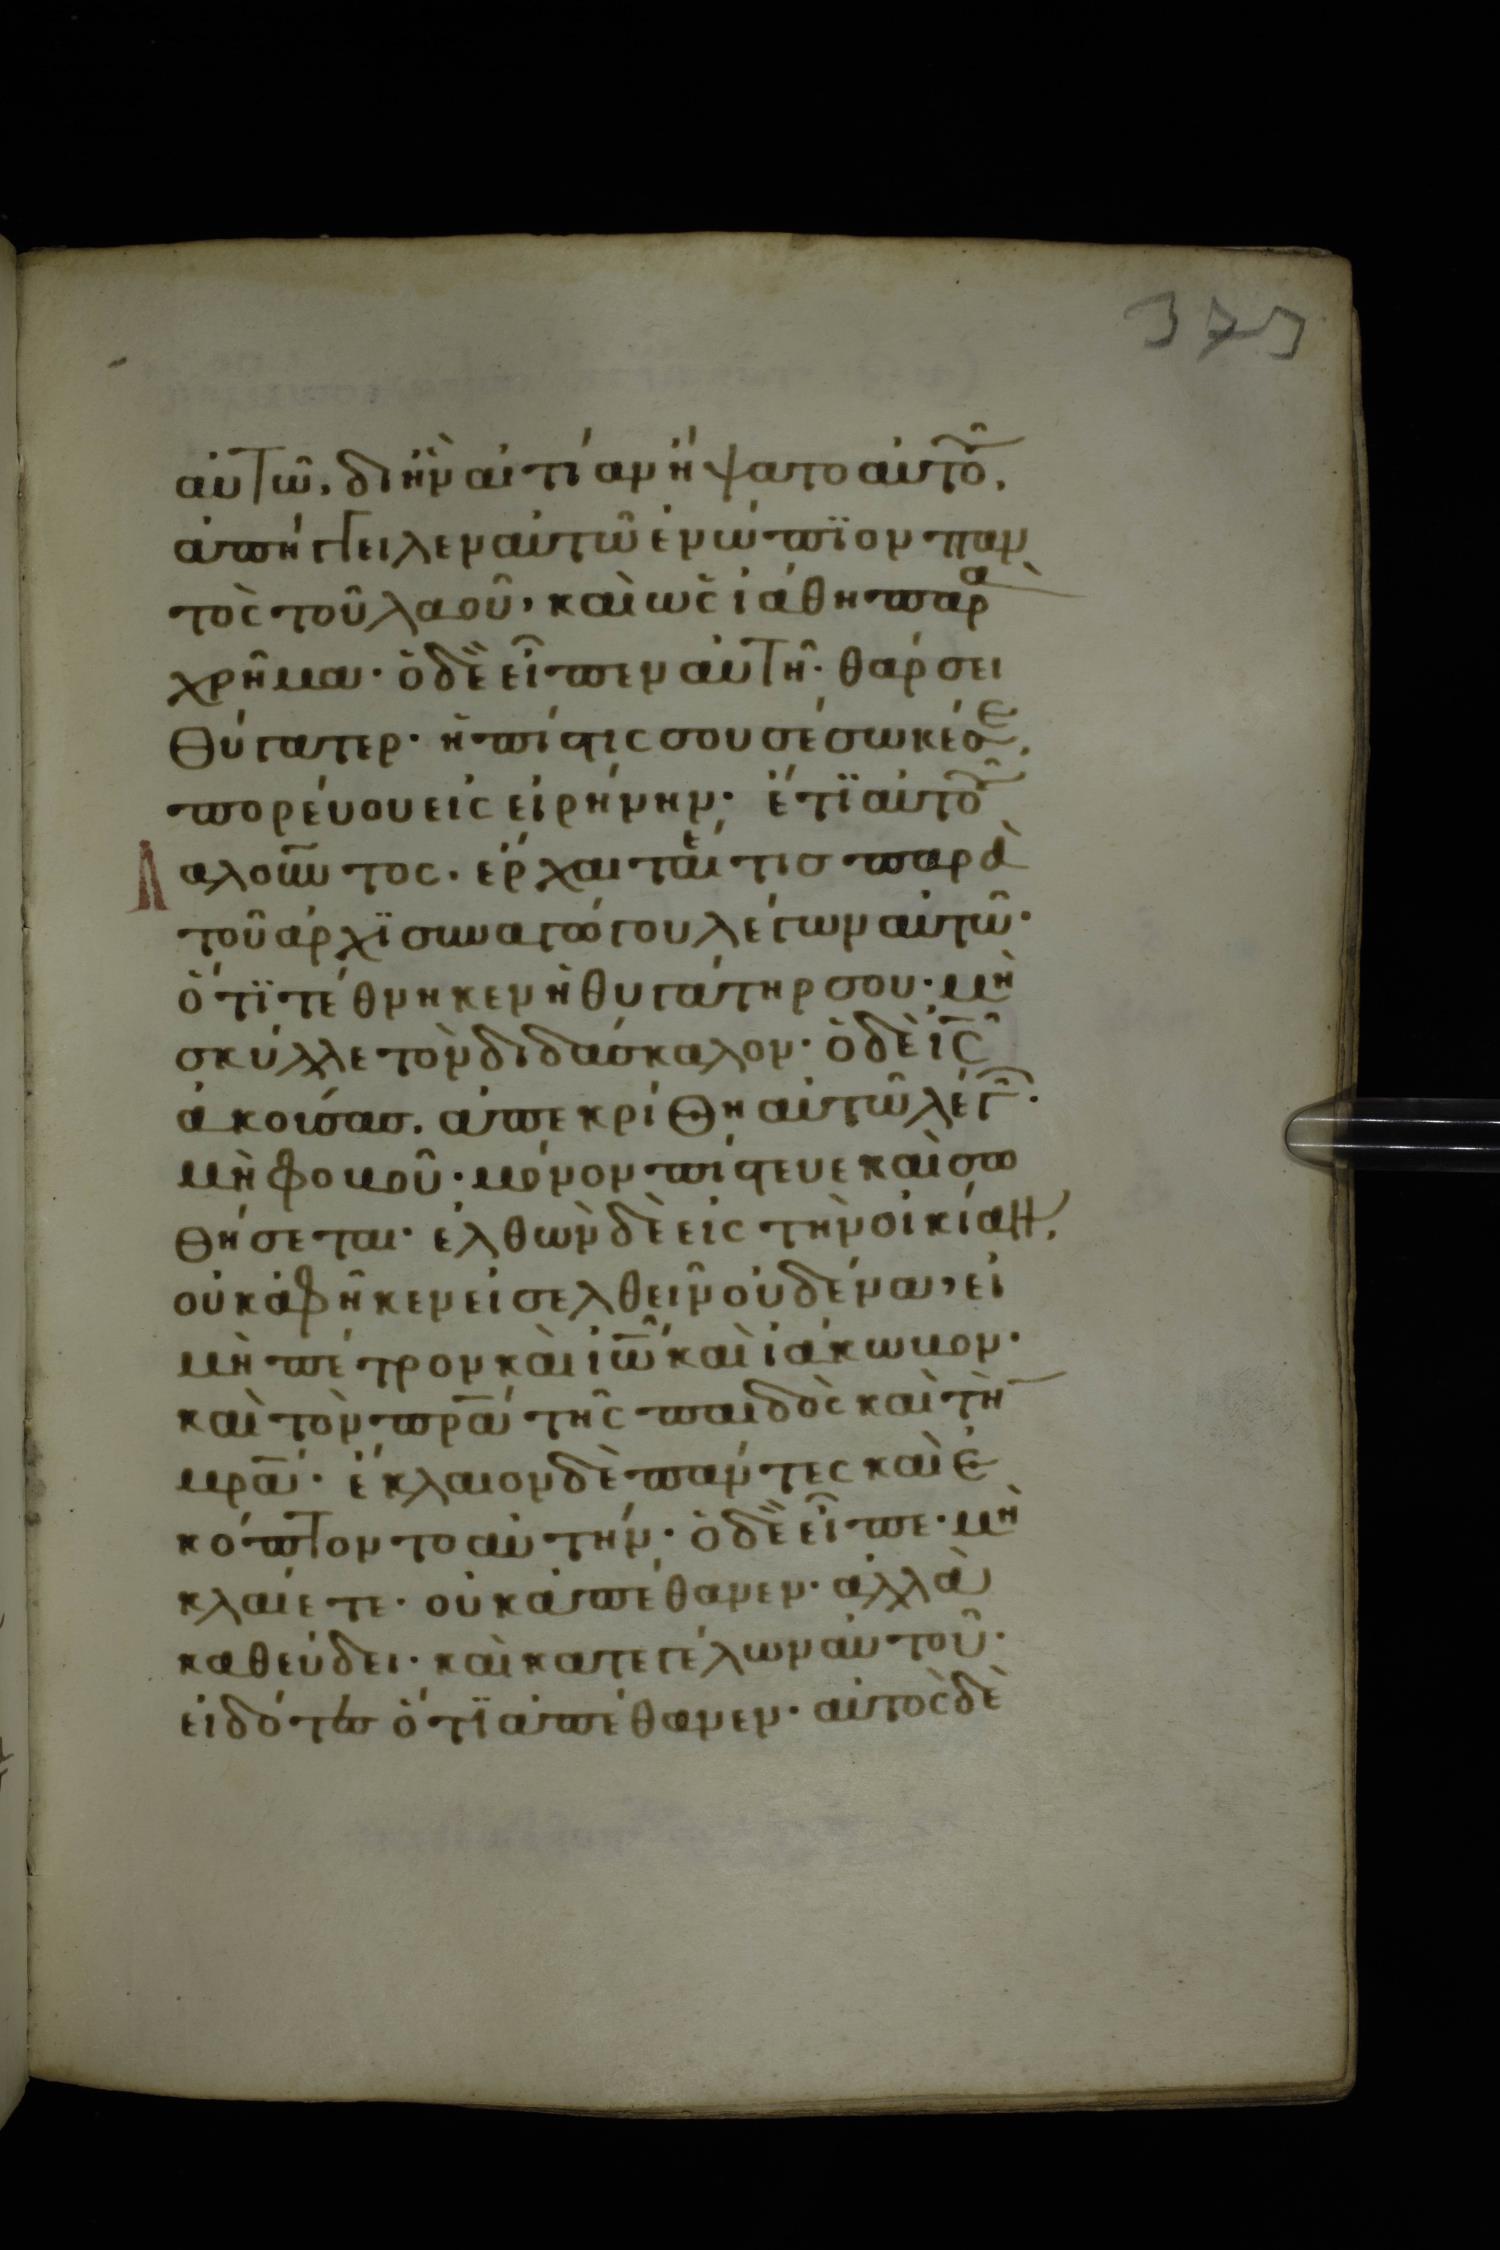 373
αὐτῶ, δι ἣν αἰτίαν ἥψατο αὐτοῦ,
ἀπήγγειλεν αὐτῶ ἐνώπϊον παν
τὸς τοῦ λαοῦ, καὶ ὡς ἰάθη παρα
χρῆμα· ὁ δὲ εἶπεν αὐτῆ· θάρσει
θύγατερ· ἡ πίστις σου σέσωκέ σε,
πορεύου εἰς εἰρήνην· ἔτϊ αὐτοῦ
λαλοῦντος. ἔρχαιταί τις παρὰ
τοῦ ἀρχϊσυναγώγου λέγων αὐτῶ·
ὅτϊ τέθνηκεν ἡ θυγάτηρ σου· μὴ
σκύλλε τὸν διδάσκαλον· ὁ δὲ ις
ἀκούσας. ἀπεκρίθη αὐτῶ λέγων·
μὴ φοβοῦ· μόνον πίστευε καὶ σω
θήσεται· ἐλθὼν δὲ εἰς τὴν οἰκίαν,
οὐκ ἀφῆκεν εἰσελθεῖν οὐδένα, εἰ
μὴ πέτρον καὶ ἰω καὶ ἰάκωβον·
καὶ τὸν πρα τῆς παιδὸς καὶ τὴν
μρα· ἔκλαιον δὲ πάντες καὶ ἐ
κόπτοντο αὐτήν· ὁ δὲ εἶπε· μὴ
κλαίετε· οὐκ ἀπέθανεν· ἀλλὰ
καθεύδει· καὶ κατεγέλων αὐτοῦ·
εἰδότες ὅτϊ ἀπέθανεν· αὐτὸς δὲ